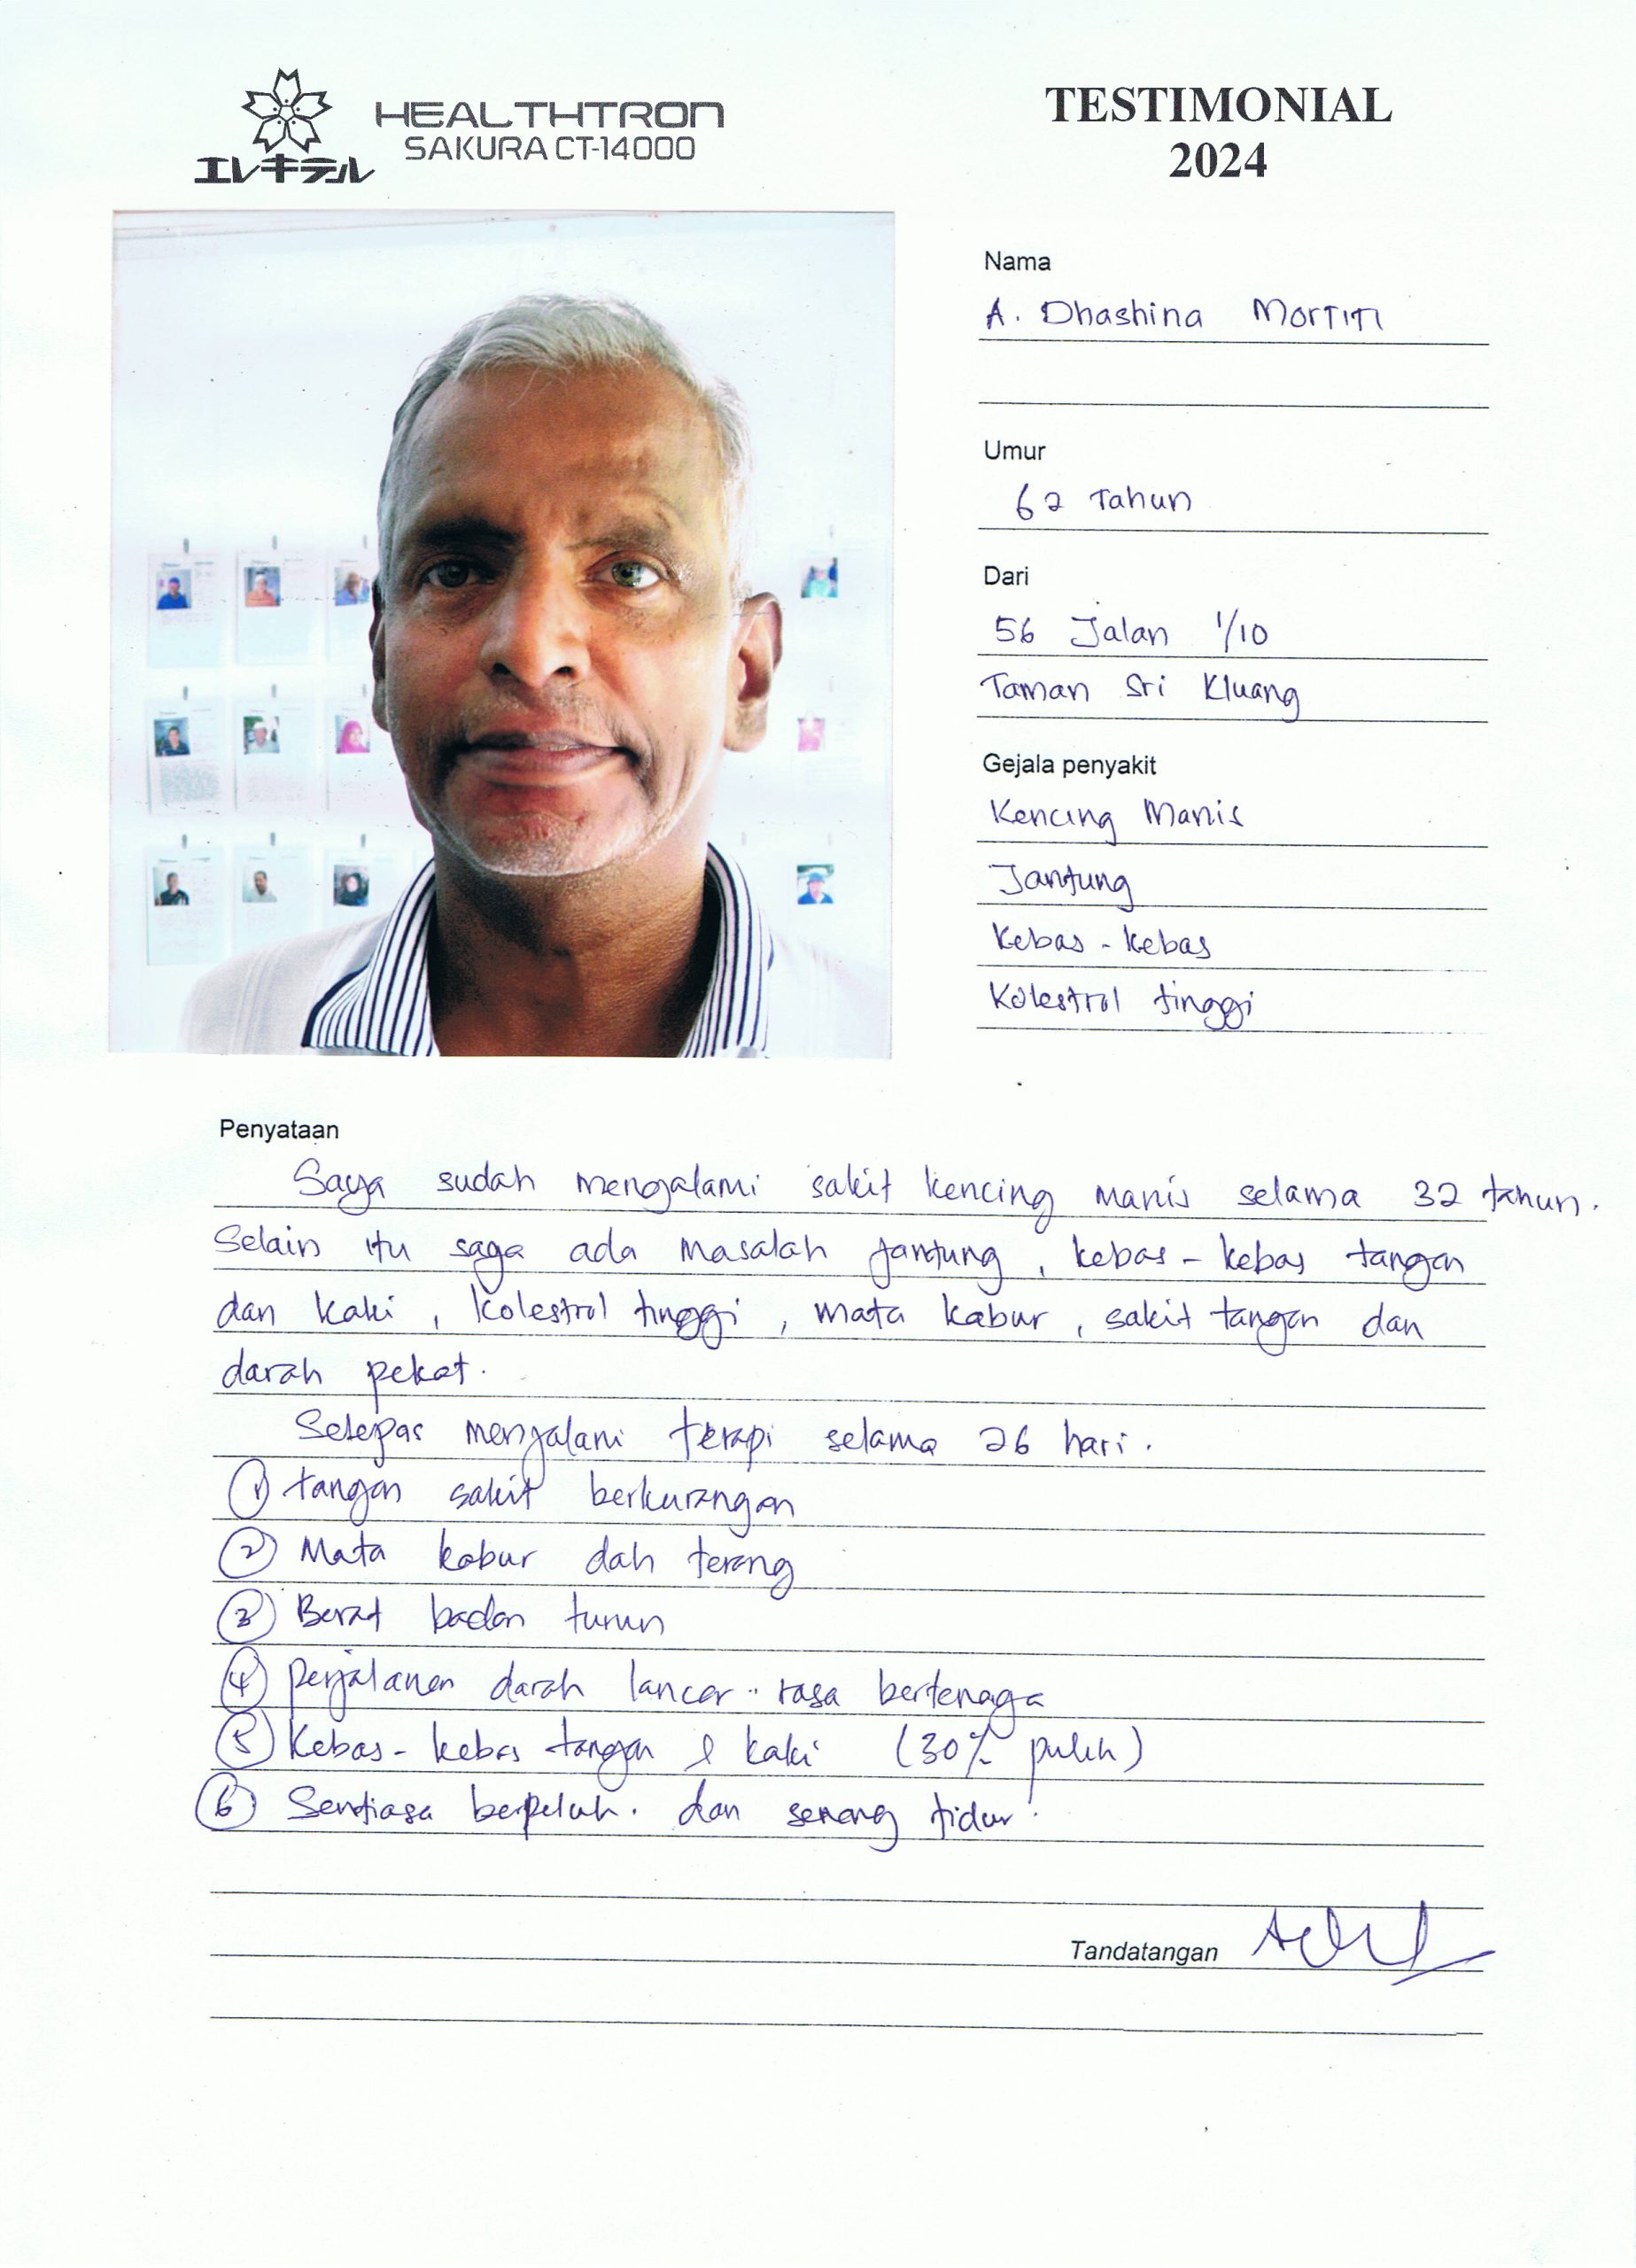 HEALTHTRON
SAKURA CT-14000
エレキテル
TESTIMONIAL
2024
Nama
A. Dhashina Mortiti
Umur
62 Tahun
Dari
56 Jalan 1/10
Taman Sri Kluang
Gejala penyakit
Kencing Manis
Jantung
Kebas - kebas
Kolestrol tinggi
Penyataan
Saya sudah mengalami sakit kencing manis selama 32 tahun.
Selain itu saya ada masalah jantung, kebas - kebas tangan
dan kaki, kolestrol tinggi, mata kabur, sakit tangan dan
darah pekat.
Selepas menjalani terapi selama 26 hari.
1 tangan sakit berkurangan
2 Mata kabur dah terang
3 Berat badan turun
4 perjalanan darah lancar.. rasa bertenaga
5 Kebas - kebas tangan & kaki (30% pulih)
6 Sentiasa berpeluh. dan senang tidur.
Tandatangan